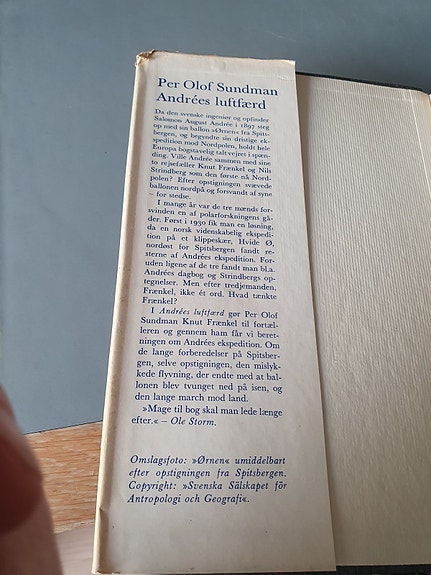 Per Olof Sundman
Andrées luftfærd
Da den svenske ingeniør og opfinder
Salomon August Andrée i 1897 steg
op med sin ballon »Ørnen« fra Spits-
bergen, og begyndte sin dristige ek-
spedition mod Nordpolen, holdt hele
Europa bogstavelig talt vejret i spæn-
ding. Ville Andrée sammen med sine
to rejsefæller Knut Frænkel og Nils
Strindberg som den første nå Nord-
polen? Efter opstigningen svævede
ballonen nordpå og forsvandt af syne
– for stedse.
I mange år var de tre mænds for-
svinden en af polarforskningens gå-
der. Først i 1930 fik man en løsning,
da en norsk videnskabelig ekspedi-
tion på et klippeskær, Hvide Ø,
nordøst for Spitsbergen fandt re-
sterne af Andrées ekspedition. For-
uden ligene af de tre fandt man bl.a.
Andrées dagbog og Strindbergs op-
tegnelser. Men efter tredjemanden,
Frænkel, ikke ét ord. Hvad tænkte
Frænkel?
I Andrées luftfærd gør Per Olof
Sundman Knut Frænkel til fortæl-
leren og gennem ham får vi beret-
ningen om Andrées ekspedition. Om
de lange forberedelser på Spitsber-
gen, selve opstigningen, den mislyk-
kede flyvning, der endte med at bal-
lonen blev tvunget ned på isen, og
den lange march mod land.
»Mage til bog skal man lede længe
efter.« – Ole Storm.
Omslagsfoto: »Ørnen« umiddelbart
efter opstigningen fra Spitsbergen.
Copyright: »Svenska Sälskapet för
Antropologi och Geografi«.